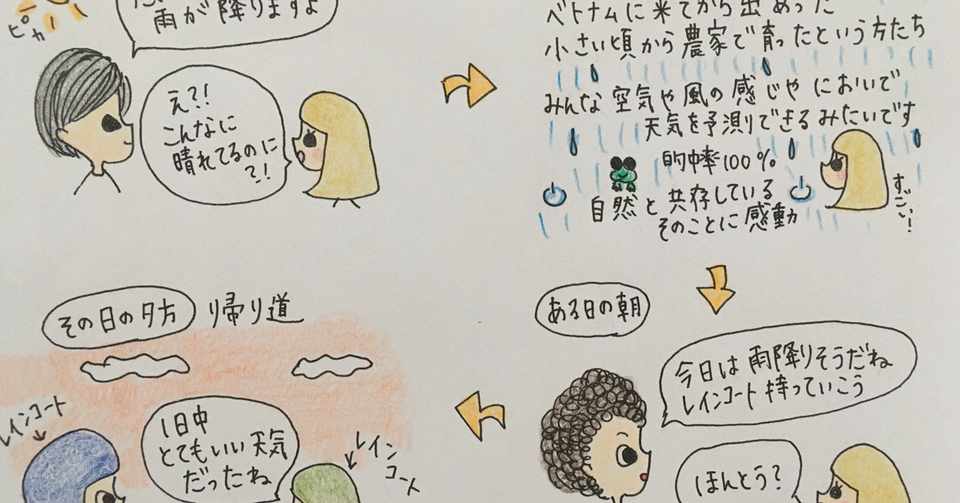 ピカー
雨が降りますよ
え?!
こんなに
晴れてるのに
?!
ベトナムに来てから出あった
小さい頃から農家で育ったという方たち
みんな空気や風の感じやにおいで
天気を予測できるみたいです
的中率100%
自然と共存している
そのことに感動
すごい!
ある日の朝
今日は雨降りそうだね
レインコート持っていこう
ほんとう?
その日の夕方 り帰り道
レインコート
1日中
とてもいい天気
だったね
レイン
コート